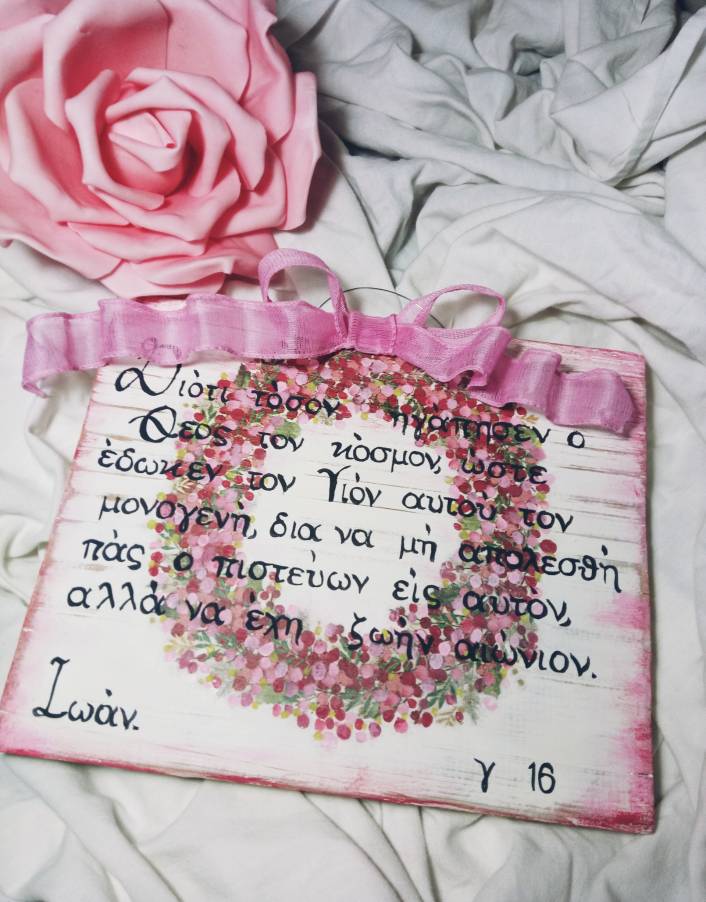 Διότι τὸσον ηγάπησεν ο
Θεὸς τον κὸσμον, ὼστε
ὲδωκεν τον Υἱὸν αυτοὺ τον
μονογενἠ, δια να μἠ απολεσθἠ
πὰς ο πιστεὺων εὶς αυτὸν,
αλλὰ να ὲχη ζωἠν αιὼνιον.
Ιωὰν.
γ 16